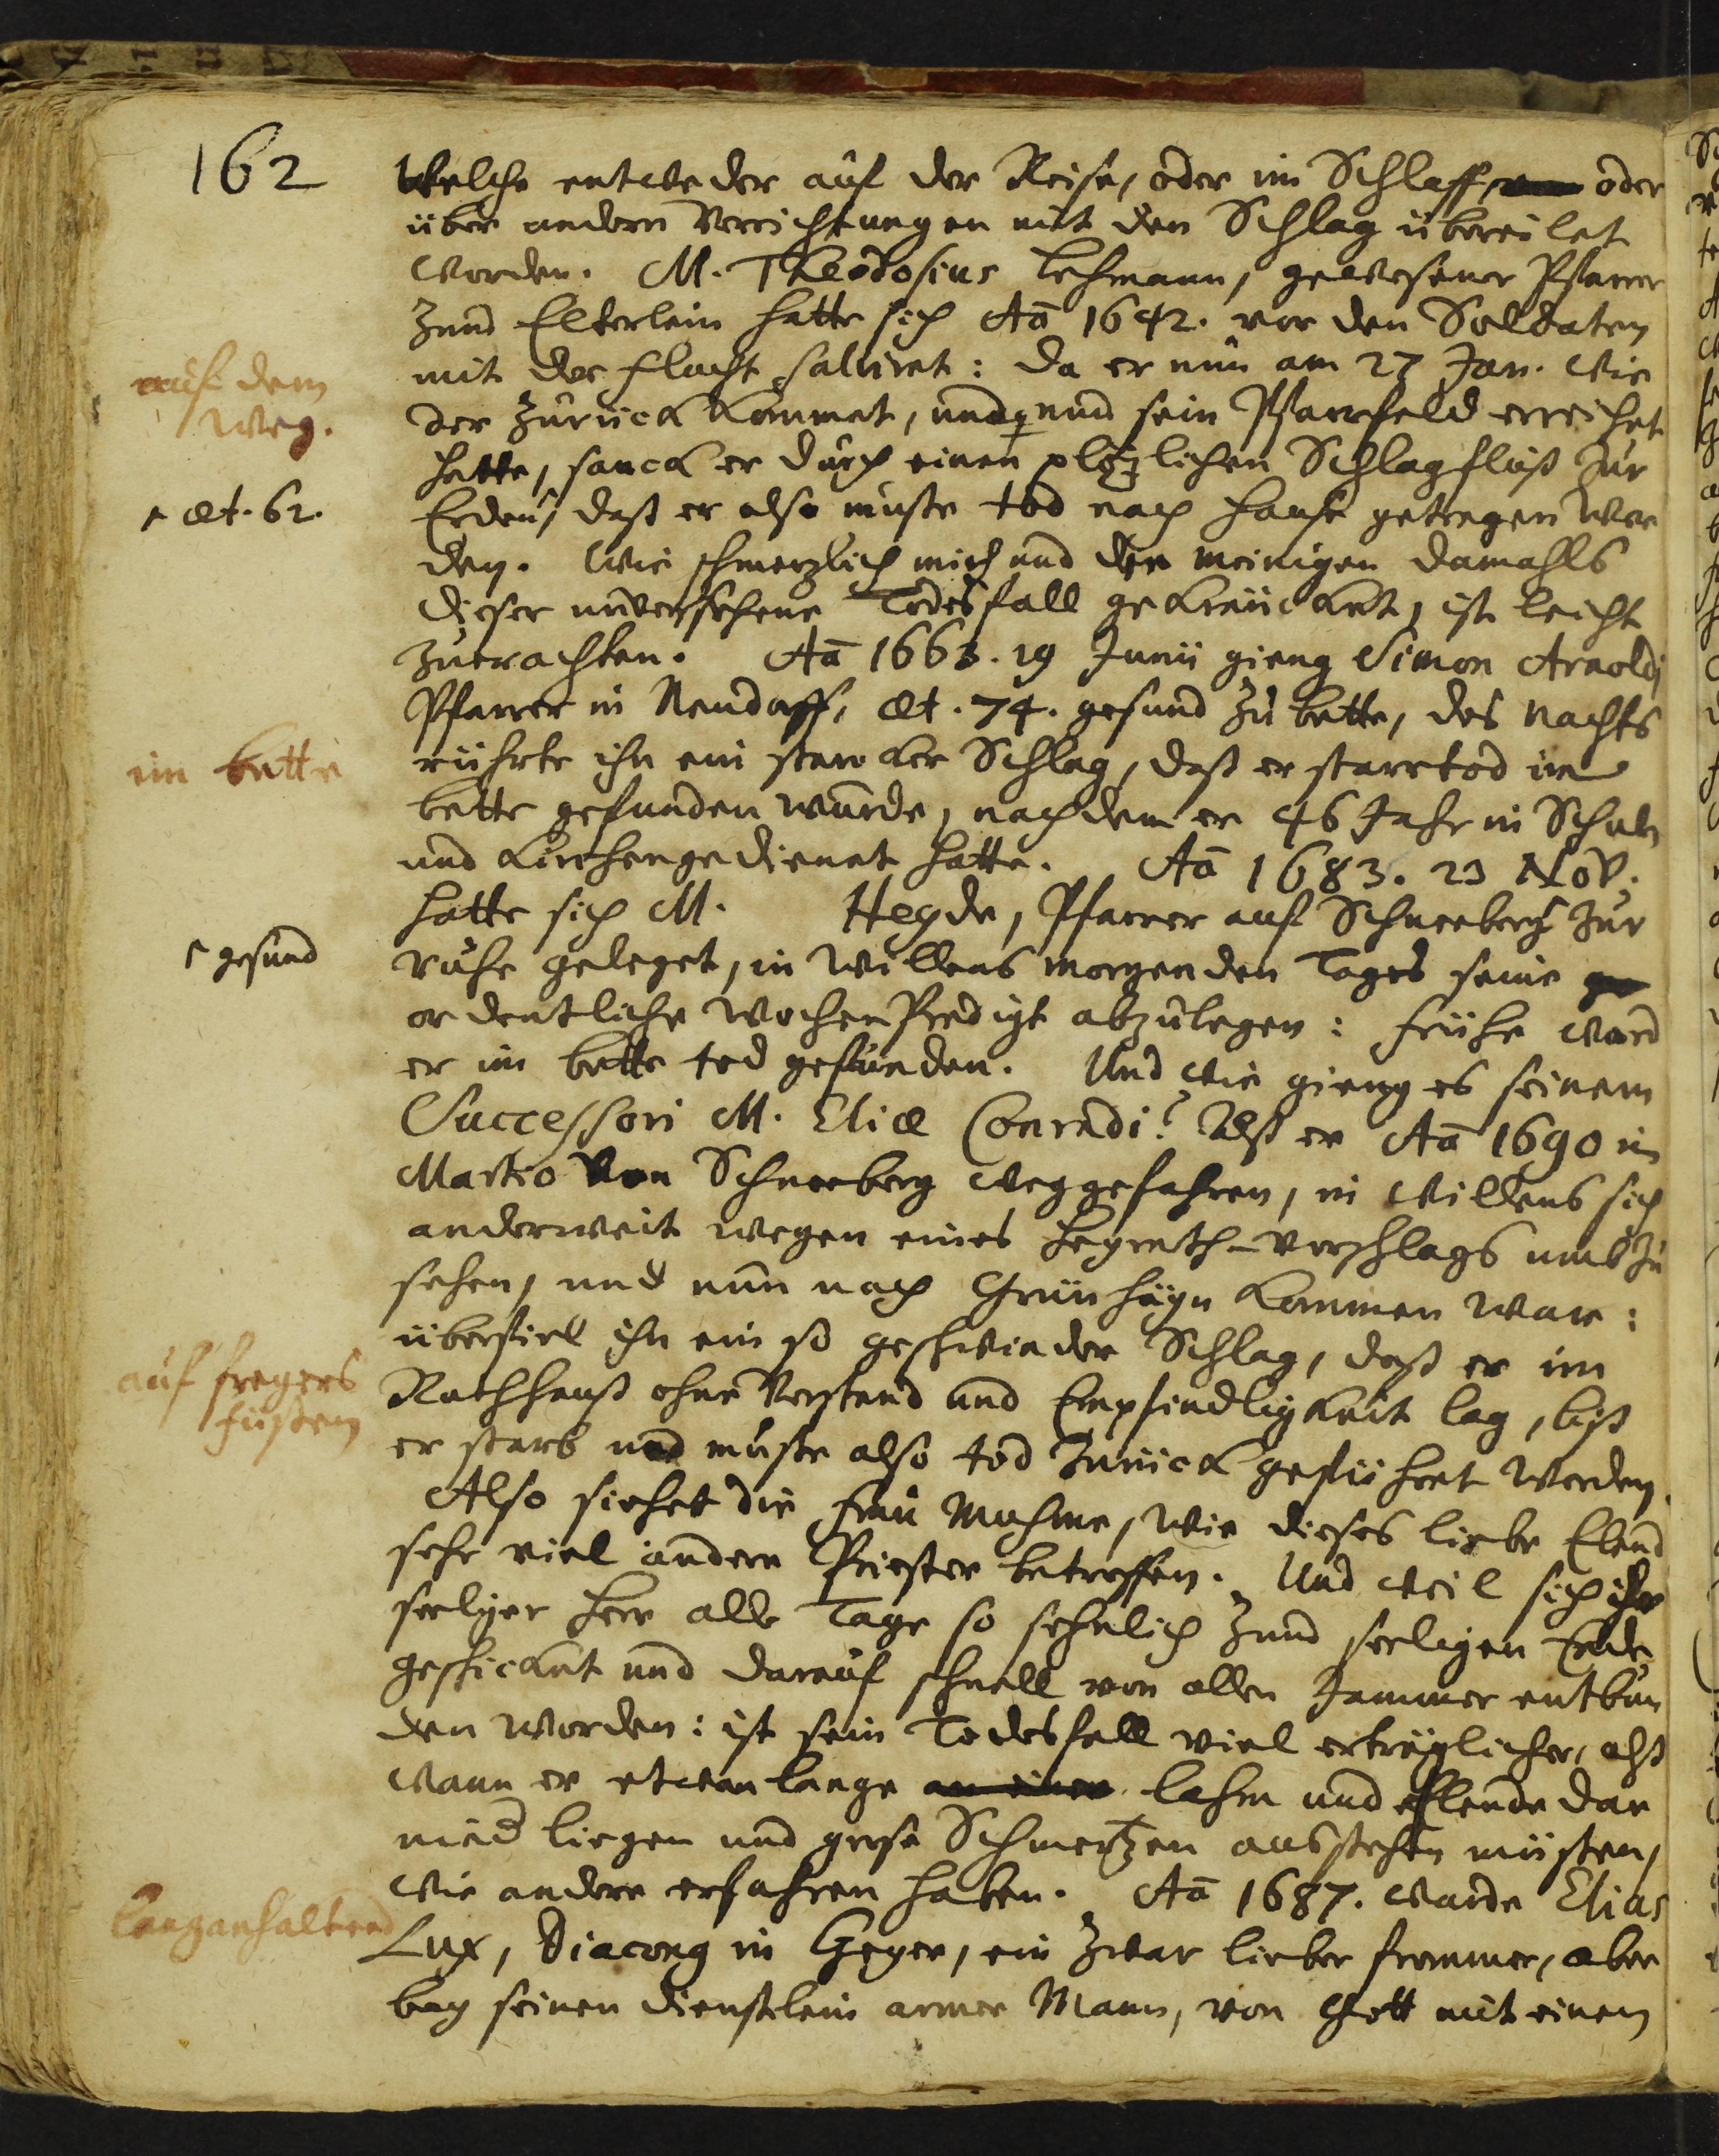 162
Welche entweder auf der Reise, oder im Schlaff, oder
über andern Verrichtungen mit den Schlag übereilet
worden. M. Theodosius Lehmann, gewesener Pfarrer
zum Elterlein hatte sich Aō 1642. vor den Soldaten
mit der flucht salviret: da er nun am 27 Jan. wie
auf dem
Weg.
der zurück kommet, und sein Pfarrfeld erreichet
hatte, sanck er durch einen plözlichen Schlagfluß zur
æt. 62.
Erden, daß er also muste tod nach Hause getragen wer
den. Wie schmerzlich mich und die meinigen damahls
dieser unversehene Todesfall gekräncket, ist leicht
zuerachten. Aō 1663. 19 Junii gieng Simon Arnoldi
Pfarrer in Neudorff, æt. 74. gesund zu bette, des Nachts
im bette
rührte ihn ein starcker Schlag, daß er starrtod im
bette gefunden wurde, nachdem er 46 Jahr in Schul
und Kirchen gedienet hatte. Aō 1683. 23 Nov.
hatte sich M. Heyde, Pfarrer auf Schneeberg zur
gesund
ruhe geleget, in Willens morgenden Tages seine
ordentliche WochenPredigt abzulegen: frühe ward
er im bette tod gefunden. Und wie gieng es seinem
Successori M. Eliæ Conradi? Alß er Aō 1690 im
Martio von Schneeberg weggefahren, in Willens sich
anderweit wegen eines Heyrath-Vorschlags umbzu
sehen, und nun nach Grünhäyn kommen war:
überfiel ihn ein so geschwinder Schlag, daß er im
auf
Rathhauß ohne Verstand und Empfindligkeit lag, biß
er starb und muste also tod zurück geführet werden.
Also siehet die Frau Muhme, wie dieses liebe Elend
sehr viel andere Priester betroffen. Und weil sich ihr
seeliger Herr alle Tage so sehnlich zum seeligen Ende
geschicket und darauf schnell von allen Jammer entbun
den worden: ist sein Todesfall viel erträglicher, alß
wann er etwan lange lahm und elende dar
nied liegen und grose Schmertzen ausstehen müsten,
wie andere erfahren haben. Aō 1687. wurde Elias
langanhaltend
Lux, Diacong in Geyer, ein zwar lieber frommer, aber
bey seinen Dienstlein armer Mann, von Gott mit einem